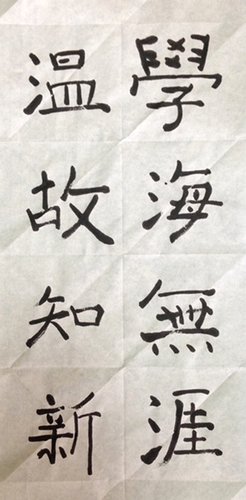 學海無涯
温故知新